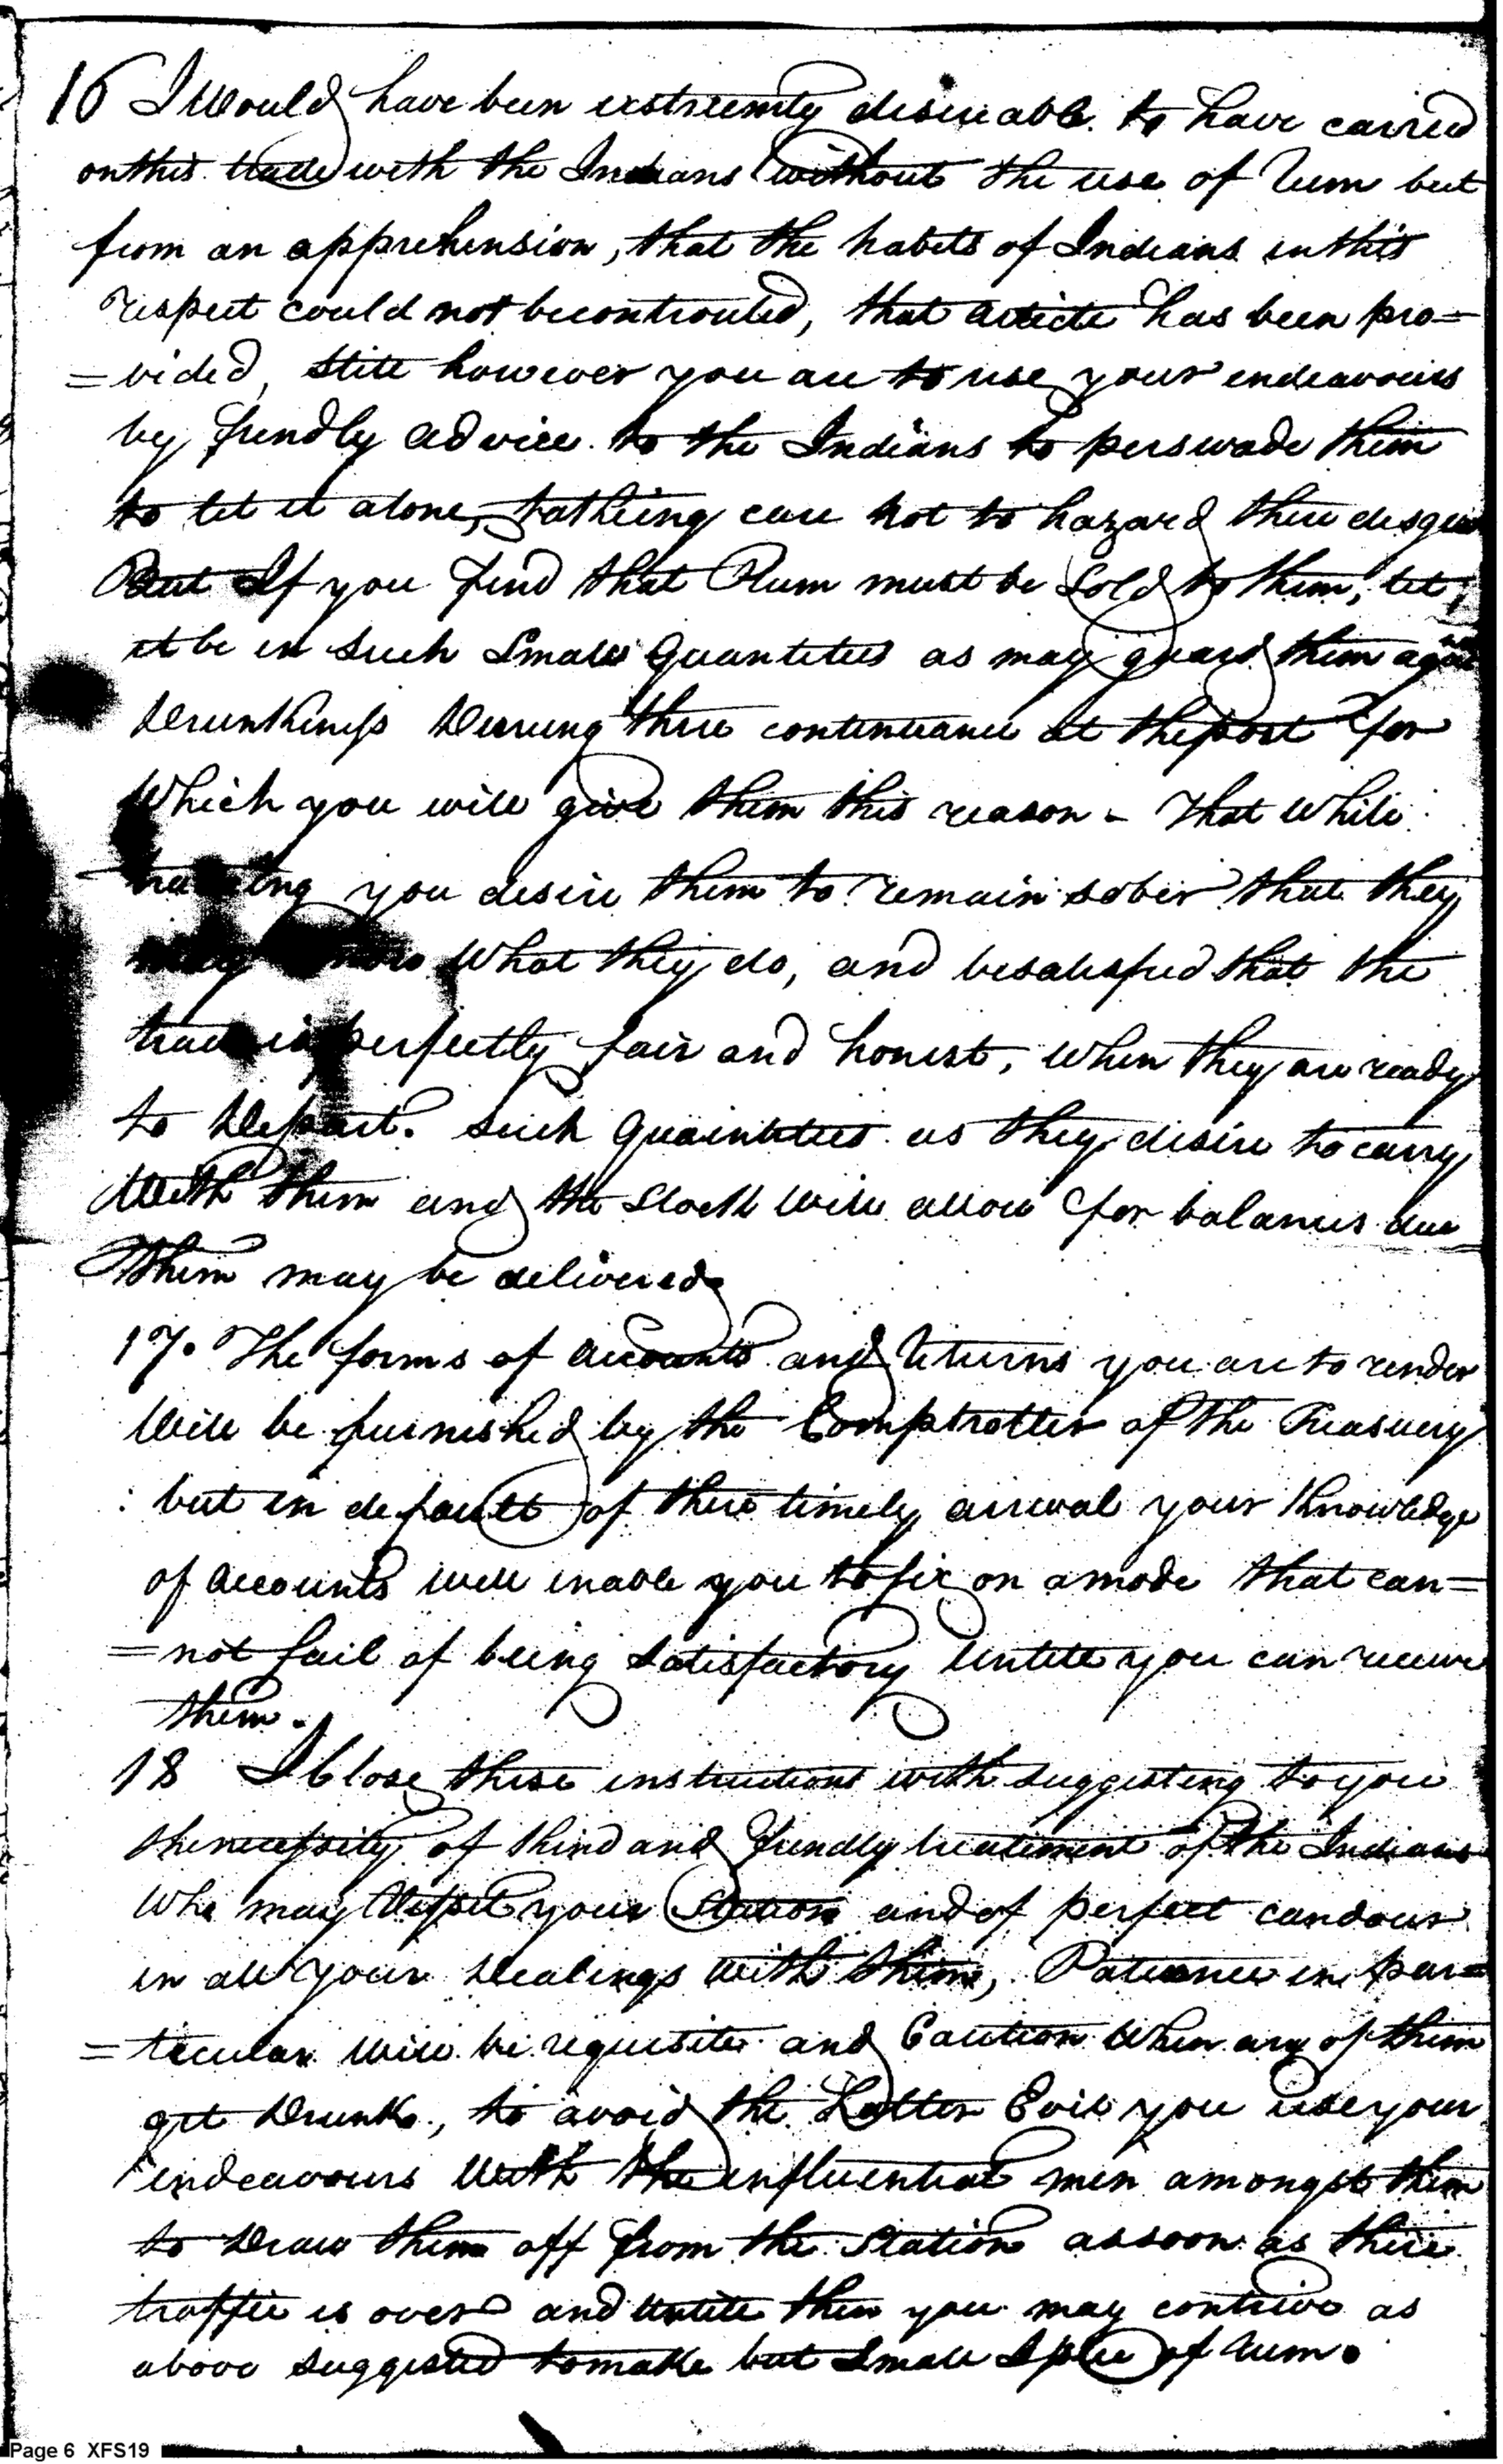 16 I Would have been exstreemly disireable to have carried
on this trade with the Indians without the use of Rum but
from an apprehension, that the habits of Indians in this
respect could not be controuled, that article has been pro=
=vided, still however you are to use your endeavours
by frendly advice to the Indians to perswade them
to let it alone, takeing care not to hazard thire
But If you find that Rum must be Sold to them, let
it be in such Small Quantities as may guard them
Drunkiness Dureing thire continuance at the post for
Which you will give them this reason - That while
tradeing you desire them to remain sober that they
may know What they do, and be satisfied that the
trade is perfectly fair and honest, When they are ready
to Depart. such Quaintities as they desire to carry
With them and the Stock will allow for balances due
them may be delivered
17. The forms of accounts and Returns you are to render
Will be furnished by the Comptroller of the Treasury
but in default of thire timely arrival your Knowledge
of accounts will inable you to fix on a mode that can=
=not fail of being Satisfactory Untill you can receive
them.
18 I Close these instructions with suggesting to you
the necessity of Kind and frendly treatement of the Indians
Who may your Station and of perfect candour
in all your Dealings with them, Patience in par=
=ticular will be requisite and Caution When any of them
get Drunk, to avoid the Latter Evil you use your
endeavours With the influential men amongst them
to Draw them off from the Station as soon as thire
traffic is over and Untill then you may contrive as
above suggested to make but Small of Rum.
Page 6 XFS19